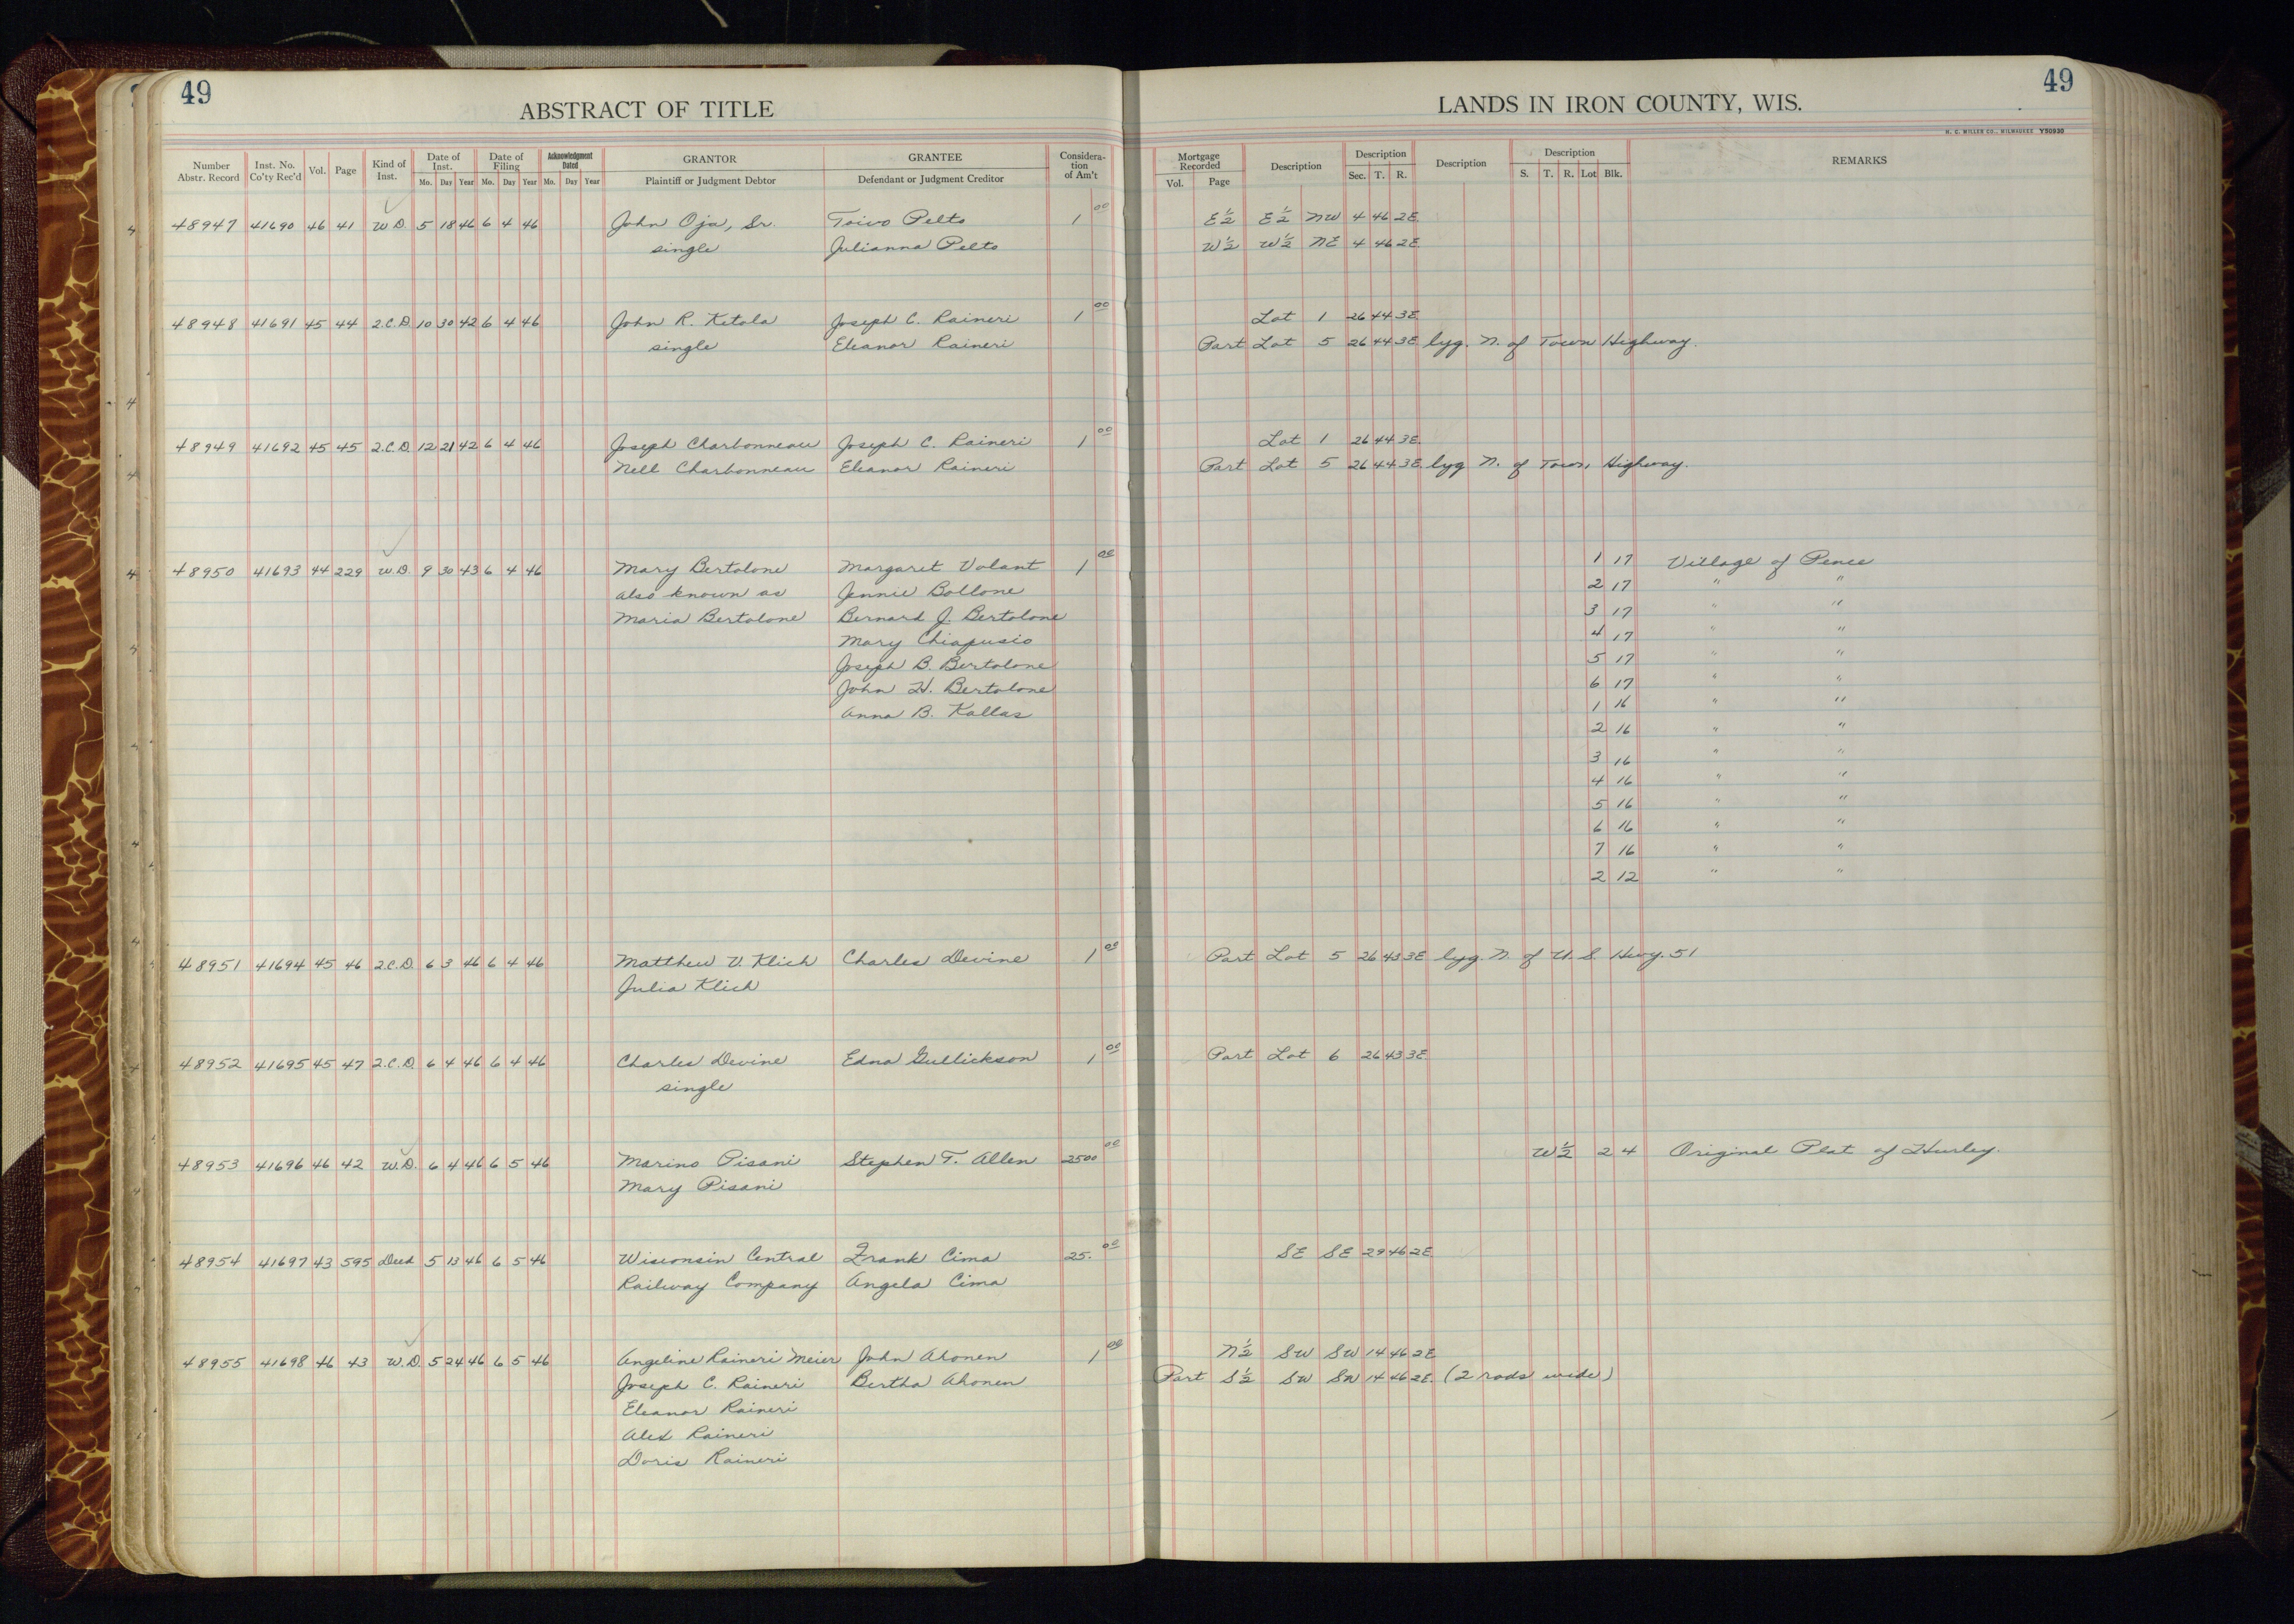 49
ABSTRACT OF TITLE
Number Abstr. Record Inst. No. Co'ty Rec'd Vol. Page Kind of Inst. Date of Inst. Mo. Day Year Date of Filing Mo. Day Year Acknowledgment Dated Mo. Day Year GRANTOR Plaintiff or Judgment Debtor GRANTEE Defendant or Judgment Creditor Considera-tion of Am't
49
LANDS IN IRON COUNTY, WIS.
H. C. MILLER CO., MILWAUKEE Y50930
Mortgage Recorded Vol. Page Description Description Sec. T. R. Description Description S. T. R. Lot Blk. REMARKS
48947 41690 46 41 W.D. 5 18 46 6 4 46 John Oja, Sr. Toivo Pelto 1 00 E½ E½ NW 4 46 2E
single Julianna Pelto W½ W½ NE 4 46 2E
48948 41691 45 44 2.C.D. 10 30 42 6 4 46 John R. Ketola Joseph C. Raineri 1 00 Lot 1 26 44 3E
single Eleanor Raineri Part Lot 5 26 44 3E lyg. N. of Town Highway.
48949 41692 45 45 2.C.D. 12 21 42 6 4 46 Joseph Charbonneau Joseph C. Raineri 1 00 Lot 1 26 44 3E
Nell Charbonneau Eleanor Raineri Part Lot 5 26 44 3E lyg N. of Town Highway.
48950 41693 44 229 W.D. 9 30 43 6 4 46 Mary Bertolone Margaret Volant 1 00 1 17 Village of Pence
also known as Jennie Bollone 2 17 " "
Maria Bertolone Bernard J. Bertolone 3 17 " "
Mary Chiapusio 4 17 " "
Joseph B. Bertolone 5 17 " "
John H. Bertolone 6 17 " "
Anna B. Kallas 1 16 " "
2 16 " "
3 16 " "
4 16 " "
5 16 " "
6 16 " "
7 16 " "
2 12 " "
48951 41694 45 46 2.C.D. 6 3 46 6 4 46 Matthew V. Klich Charles Devine 1 00 Part Lot 5 26 43 3E lyg. N. of U.S. Hwy. 51
Julia Klich
48952 41695 45 47 2.C.D. 6 4 46 6 4 46 Charles Devine Edna Gullickson 1 00 Part Lot 6 26 43 3E
single
48953 41696 46 42 W.D. 6 4 46 6 5 46 Marino Pisani Stephen T. Allen 2500 00 W½ 2 4 Original Plat of Hurley.
Mary Pisani
48954 41697 43 595 Deed 5 13 46 6 5 46 Wisconsin Central Frank Cima 25. 00 SE SE 29 46 2E
Railway Company Angela Cima
48955 41698 46 43 W.D. 5 24 46 6 5 46 Angeline Raineri Meier John Ahonen 1 00 N½ SW SW 14 46 2E
Joseph C. Raineri Bertha Ahonen Part S½ SW SW 14 46 2E. (2 rods wide)
Eleanor Raineri
Alex Raineri
Doris Raineri